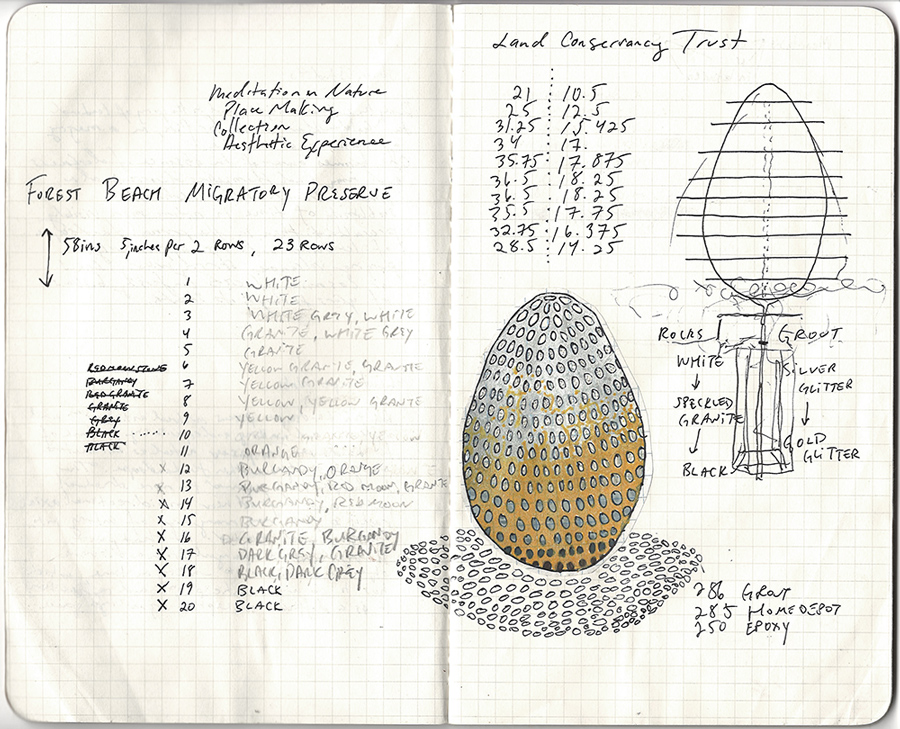 Meditation in Nature
Place Making
Collection
Aesthetic Experience
FOREST BEACH MIGRATORY PRESERVE
58ins 5 inches per 2 ROWS, 23 ROWS
1 WHITE
2 WHITE
3 WHITE GREY, WHITE
4 GRANITE, WHITE GREY
5 GRANITE
REDMOONSTONE 6 YELLOW GRANITE, GRANITE
BURGANDY 7 YELLOW GRANITE
RED GRANITE 8 YELLOW, YELLOW GRANITE
GRANITE 9 YELLOW
GREY 10 YELLOW
BLACK
BLACK 11 ORANGE
X 12 BURGANDY, ORANGE
X 13 BURGANDY, RED MOON, GRANITE
X 14 BURGANDY, RED MOON
X 15 BURGANDY
X 16 GRANITE, BURGANDY
X 17 DARK GREY, GRANITE
X 18 BLACK, DARK GREY
X 19 BLACK
X 20 BLACK
Land Conservancy Trust
21 10.5
25 12.5
31.25 15.425
34 17.
35.75 17.875
36.5 18.25
36.5 18.25
35.5 17.75
32.75 16.375
28.5 14.25
ROCKS
WHITE
↓
SPECKLED
GRANITE
↓
BLACK
GROUT
SILVER
GLITTER
↓
GOLD
GLITTER
286 GROUT
285 HOMEDEPOT
250 EPOXY